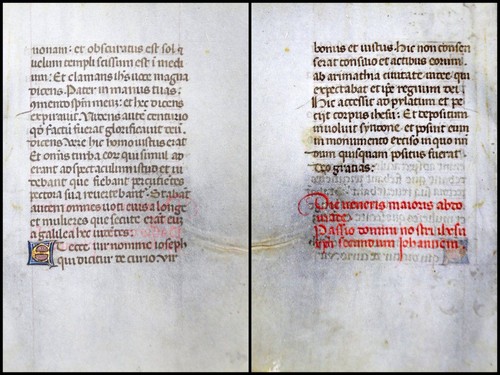 nonam: et obscuratus est sol &
uelum templi scissum est ī medi
um: Et clamans ihs uoce magna
dicens. Pater in manus tuas
ɔmento spm meū: et hec dicens
expirauit. Videns autē centurio
qd factū fuerat glorificauit deū
dicens. Uere hic homo iustus erat
Et omnis turba eor qui simul ad
erant ad spectaculū istud et ui
debant que fiebant percuciētes
pectora sua reuertebant. Stabāt
autem omnes noti eius a longe
et mulieres que secute erāt eū
a galilea hec uidētes:
Et ecce uir nomine ioseph
qui dicitur de curio. uir
bonus et iustus. hic non consen
serat consilio et actibus eorum.
ab arimathia ciuitate iudee. qui
expectabat et ipē regnum dei.
Hic accessit ad pylatum et pe
tiit corpus ihesu: Et depositum
inuoluit syndone. et posuit eum
in monumento exciso in quo nō
dum quisquam positus fuerat
Deo gratias:
Die ueneris maioris ebdo
made
Passio domini nostri ihesu
xpi secundum Iohannem